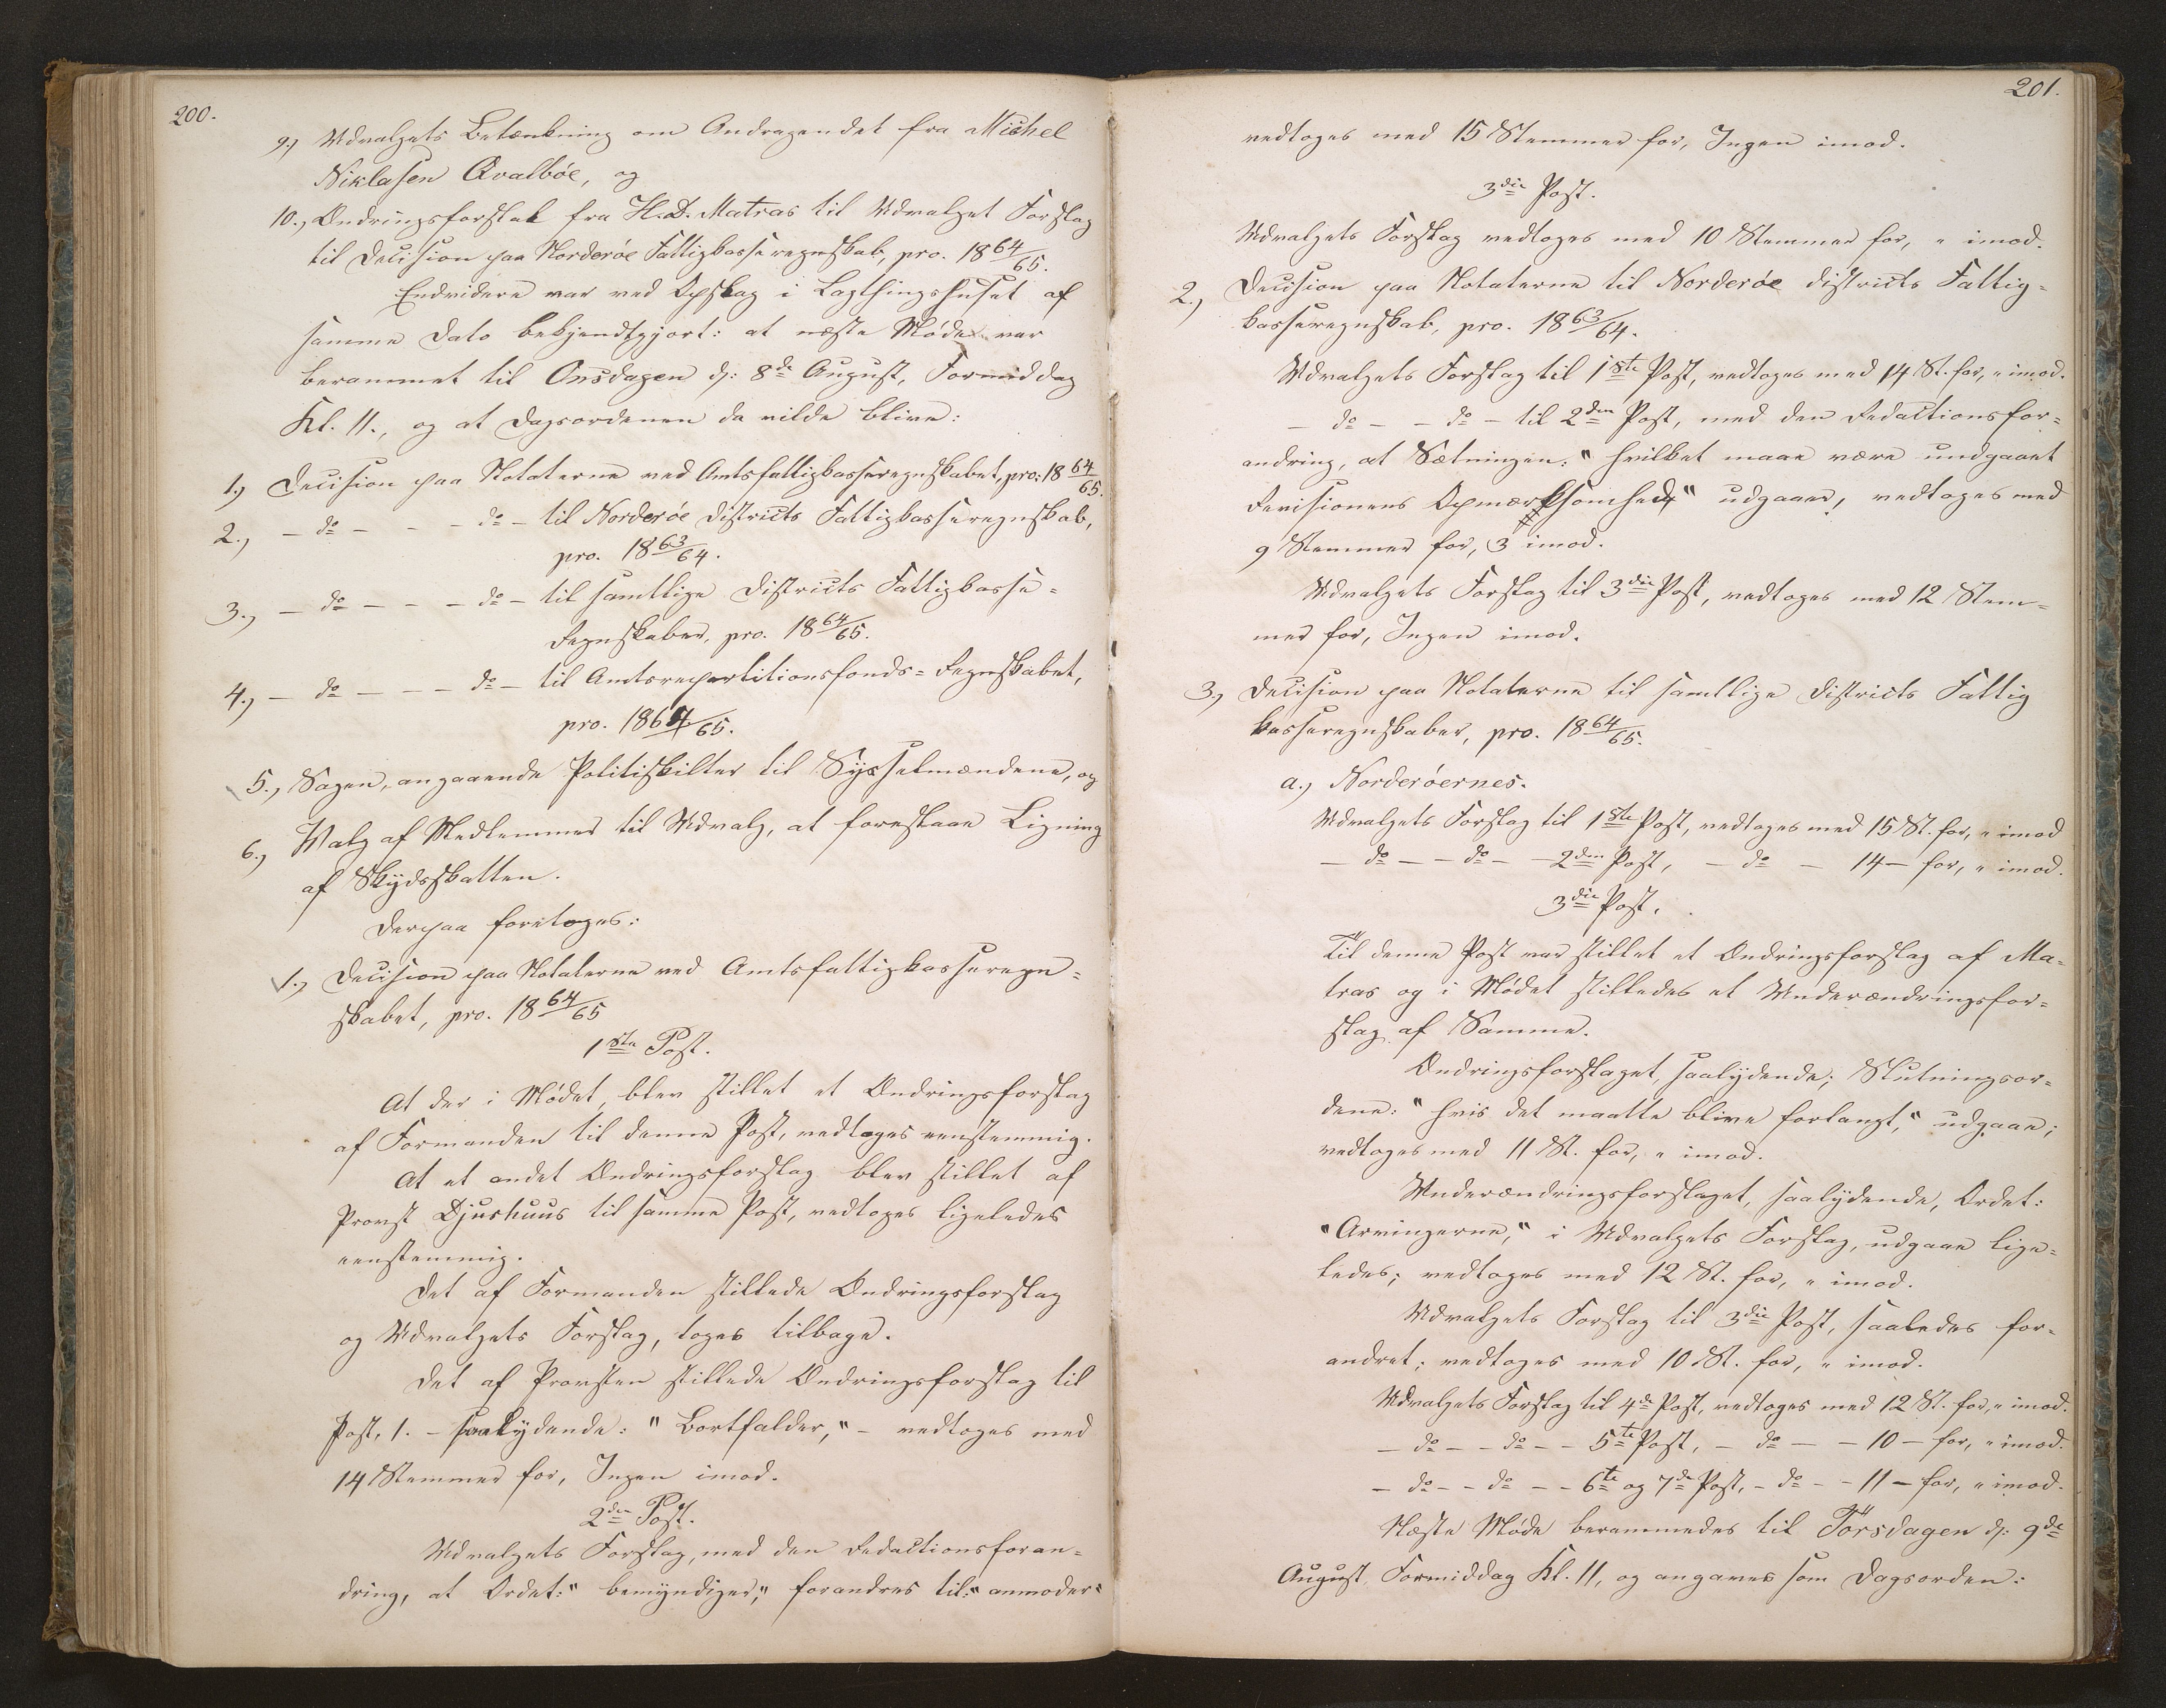 200.
9.) Udvalgets Betænkning om Andragendet fra Michel
Niklasen Qvalböe, og
10., Ændringsforslag fra H. D. Matras til Udvalget Forslag
til Decision paa Norderöe Fattigkasseregnskab, pro. 18 64/65.
Endvidere var ved Opslag i Lagthingshuset af
samme Dato bekjendtgjort: at næste Möde var
berammet til Onsdagen d: 8de August, Formiddag
Kl. 11., og at Dagsordenen da vilde blive:
1.) Decision paa Notaterne ved Amtsfattigkasseregnskabet, pro: 18 64/65.
2., – do – – – do – til Norderöe Districts Fattigkasseregnskab,
pro. 18 63/64.
3., – do – – – do – til samtlige Districts Fattigkasse=
Regnskaber, pro. 18 64/65.
4., – do – – – do – til Amtsrepartitionsfonds=Regnskabet,
pro. 1864/65.
5., Sagen, angaaende Politiskilter til Sysselmændene, og
6., Valg af Medlemmer til Udvalg, at foreslaae Ligning
af Skydsskatten.
Derpaa foretoges:
1.) Decision paa Notaterne ved Amtsfattigkasseregn=
skabet, pro. 18 64/65
1ste Post.
At der i Mödet, blev stillet et Ændringsforslag
af Formanden til denne Post, vedtoges eenstemmig.
At et andet Ændringsforslag blev stillet af
Provst Djurhuus til samme Post, vedtoges ligeledes
eenstemmig.
Det af Formanden stillede Ændringsforslag
og Udvalgets Forslag, toges tilbage.
Det af Provsten stillede Ændringsforslag til
Post. 1. – saalydende: "Bortfalder," – vedtoges med
14 Stemmer for, Ingen imod.
2den Post.
Udvalgets Forslag, med den Redactionsforan=
dring, at Ordet: "bemyndiger," forandres til: "anmoder"
201.
vedtoges med 15 Stemmer for, Ingen imod.
3die Post.
Udvalgets Forslag vedtoges med 10 Stemmer for, " imod.
2., Decision paa Notaterne til Norderöe Districts Fattig=
kasseregnskab, pro. 18 63/64.
Udvalgets Forslag til 1ste Post, vedtoges med 14 St. for, " imod.
– do – – do – til 2den Post, med den Redactionsfor=
andring, at Sætningen: "hvilket maae være undgaaet
Revisionens Opmærksomhed," udgaaer, vedtoges med
9 Stemmer for, 3 imod.
Udvalgets Forslag til 3die Post, vedtoges med 12 Stem=
mer for, Ingen imod.
3., Decision paa Notaterne til samtlige Districts Fattig
kasseregnskaber, pro. 18 64/65.
a., Norderöernes.
Udvalgets Forslag til 1ste Post, vedtoges med 15 St. for, " imod
– do – – do – – 2den Post, – do – 14 – for, " imod.
3die Post.
Til denne Post var stillet et Ændringsforslag af Ma=
tras og i Mödet stilledes et Underændringsfor=
slag af Samme.
Ændringsforslaget, saalydende; Slutningsor=
dene: "hvis det maatte blive forlangt," udgaae;
vedtoges med 11 St. for, " imod.
Underændringsforslaget, saalydende, Ordet:
"Arvingerne," i Udvalgets Forslag, udgaae lige=
ledes; vedtoges med 12 St. for, " imod.
Udvalgets Forslag til 3die Post, saaledes for=
andret; vedtoges med 10 St. for, " imod.
Udvalgets Forslag til 4de Post, vedtoges med 12 St. for, " imod.
– do – – do – – 5te Post, – do – – 10 – for, " imod.
– do – – do – – 6te og 7de Post, – do – – 11 – for, " imod.
Næste Möde berammedes til Torsdagen d: 9de
August Formiddag Kl. 11, og angaves som Dagsorden: